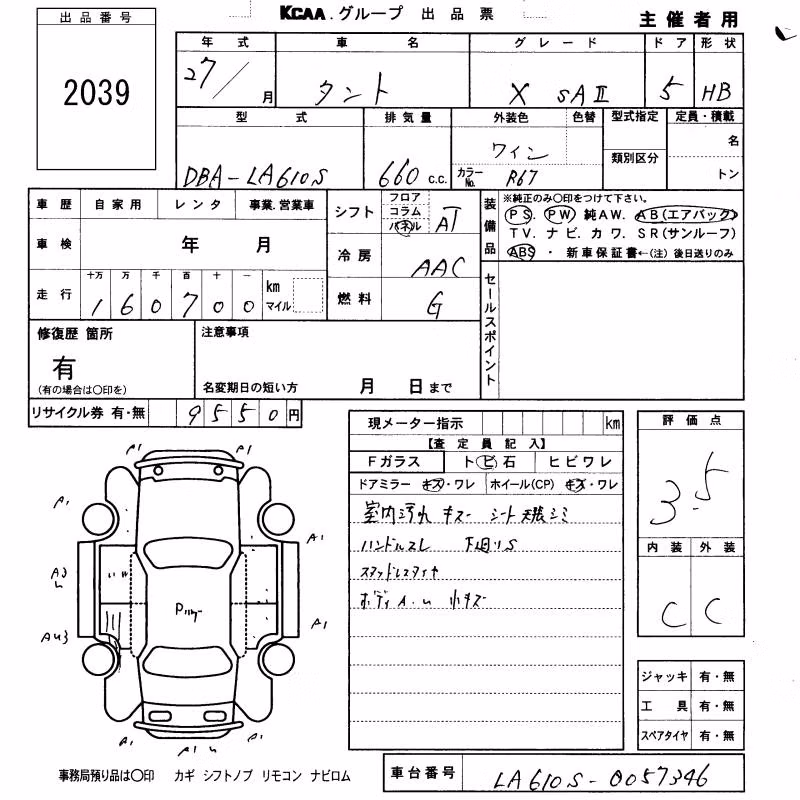 出品番号
KCAA.グループ 出品票
主催者用
2039
年式 車名 グレード ドア 形状
27/ 月 タント X SAⅡ 5 HB
型式 排気量 外装色 色替 型式指定 定員・積載
名
ワイン 類別区分
DBA-LA610S 660 c.c. カラーNo. R67 トン
車歴 自家用 レンタ 事業.営業車
シフト フロア コラム パネル AT
装備品 ※純正のみ〇印をつけて下さい。
PS. PW 純AW. AB(エアバック)
TV. ナビ. カワ. SR(サンルーフ)
ABS ・ 新車保証書←(注) 後日送りのみ
車検 年 月
冷房 AAC
走行 十万 万 千 百 十 一 km マイル
1 6 0 7 0 0
燃料 G
セールスポイント
修復歴 箇所
有
(有の場合は〇印を)
注意事項
名変期日の短い方 月 日まで
リサイクル券 有・無 9550円
現メーター指示 km
【査定員記入】
Fガラス トビ石 ヒビワレ
ドアミラー キズ・ワレ ホイール(CP) キズ・ワレ
室内汚れ キズー シート天張シミ
ハンドルスレ 下廻りS
スタッドレスタイヤ
ボディA.U 小キズ
評価点
3.5
内装 外装
C C
A1 A1
A1
A1
A1
AU3
A1
A1
ジャッキ 有・無
工具 有・無
スペアタイヤ 有・無
事務局預り品は〇印 カギ シフトノブ リモコン ナビロム
車台番号 LA610S-0057346